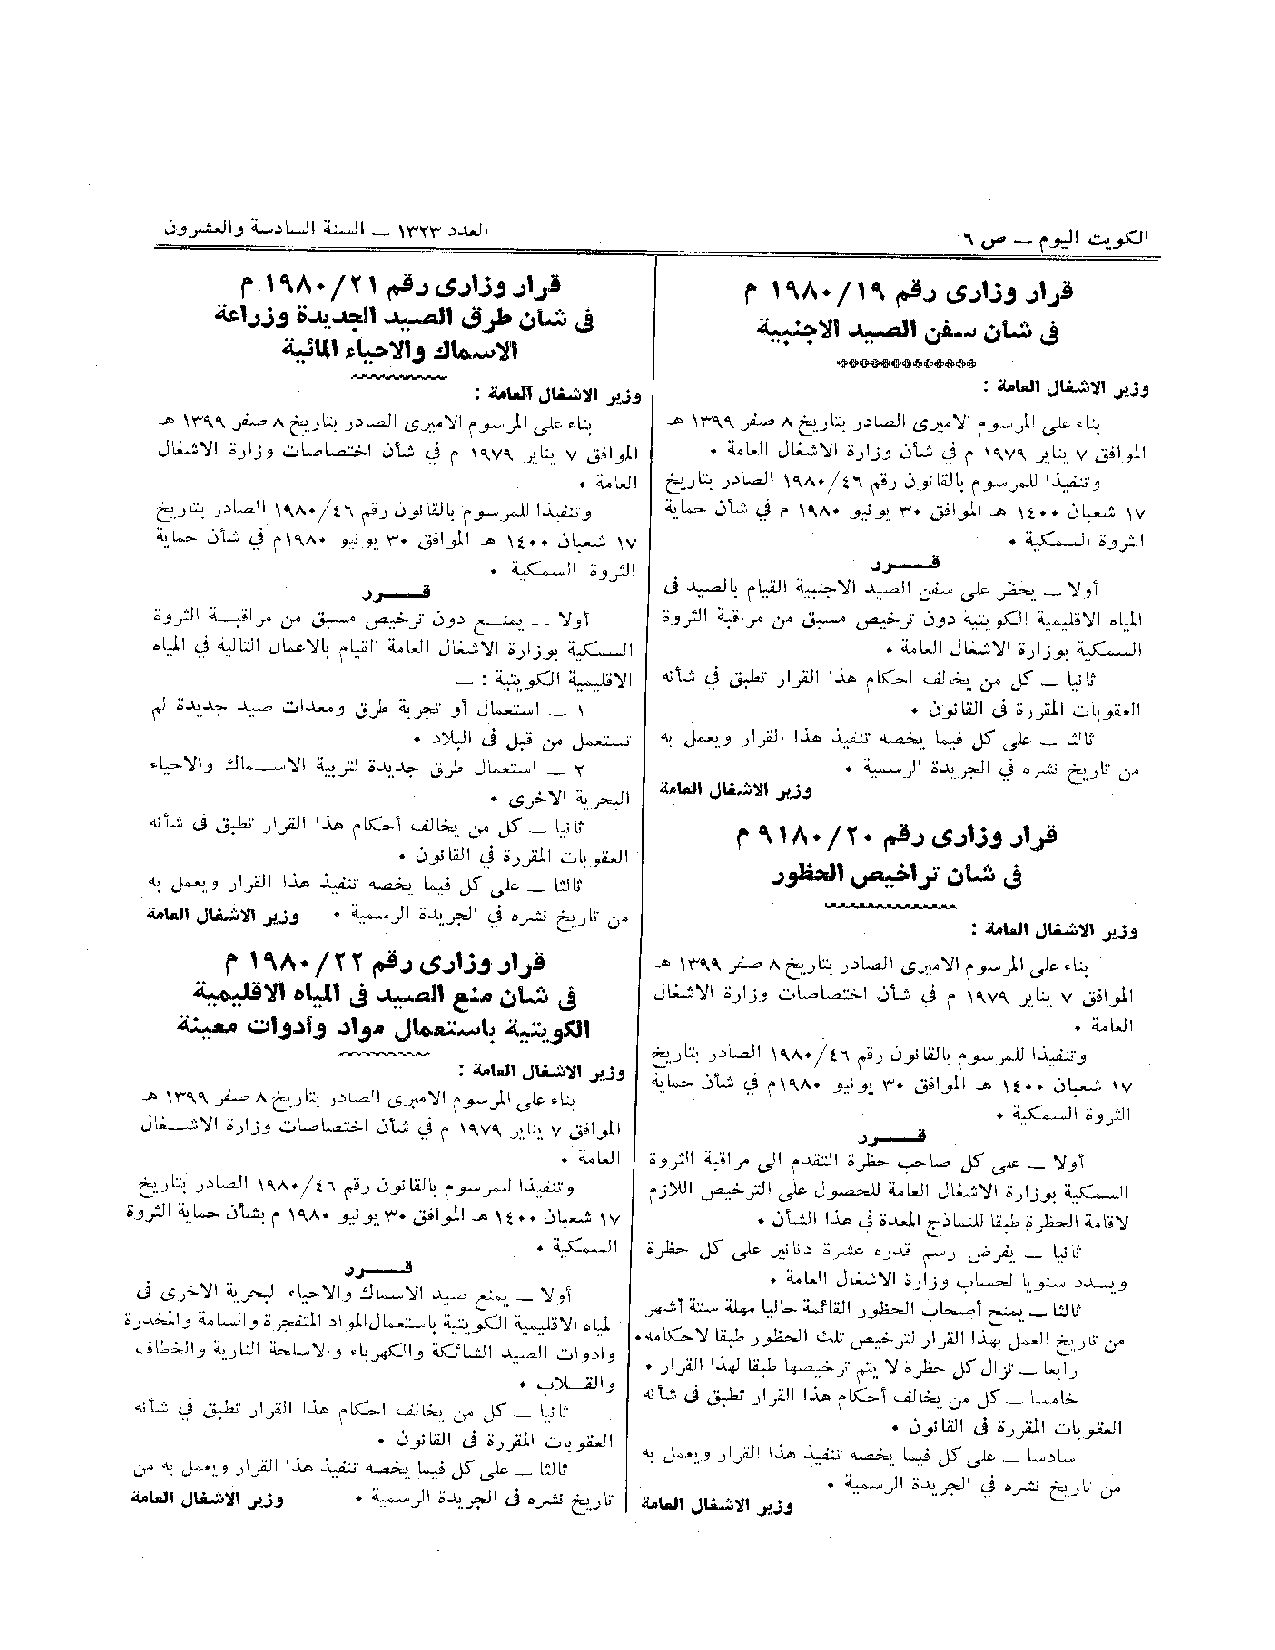 الكويت اليوم ــ ص ٦
العدد ١٣٢٣ ــ السنة السادسة والعشرون
قرار وزارى رقم ١٩/١٩٨٠ م
فى شأن سفن الصيد الاجنبية
وزير الاشغال العامة :
بناء على المرسوم الاميرى الصادر بتاريخ ٨ صفر ١٣٩٩ هـ
الموافق ٧ يناير ١٩٧٩ م في شأن وزارة الاشغال العامة .
وتنفيذا للمرسوم بالقانون رقم ٤٦/١٩٨٠ الصادر بتاريخ
١٧ شعبان ١٤٠٠ هـ الموافق ٣٠ يونيو ١٩٨٠ م في شأن حماية
الثروة السمكية .
قــــرر
أولا ــ يحظر على سفن الصيد الاجنبية القيام بالصيد فى
المياه الاقليمية الكويتية دون ترخيص مسبق من مراقبة الثروة
السمكية بوزارة الاشغال العامة .
ثانيا ــ كل من يخالف احكام هذا القرار تطبق في شأنه
العقوبات المقررة فى القانون .
ثالثا ــ على كل فيما يخصه تنفيذ هذا القرار ويعمل به
من تاريخ نشره في الجريدة الرسمية .
وزير الاشغال العامة
قرار وزارى رقم ٢٠/٩١٨٠ م
فى شان تراخيص الحظور
وزير الاشغال العامة :
بناء على المرسوم الاميرى الصادر بتاريخ ٨ صفر ١٣٩٩ هـ
الموافق ٧ يناير ١٩٧٩ م في شأن اختصاصات وزارة الاشغال
العامة .
وتنفيذا للمرسوم بالقانون رقم ٤٦/١٩٨٠ الصادر بتاريخ
١٧ شعبان ١٤٠٠ هـ الموافق ٣٠ يونيو ١٩٨٠م في شأن حماية
الثروة السمكية .
قــــرر
أولا ــ على كل صاحب حظرة التقدم الى مراقبة الثروة
السمكية بوزارة الاشغال العامة للحصول على الترخيص اللازم
لاقامة الحظرة طبقا للنماذج المعدة في هذا الشأن .
ثانيا ــ يفرض رسم قدره عشرة دنانير على كل حظرة
ويسدد سنويا لحساب وزارة الاشغال العامة .
ثالثا ــ يمنح أصحاب الحظور القائمة حاليا مهلة ستة أشهر
من تاريخ العمل بهذا القرار لترخيص تلك الحظور طبقا لاحكامه.
رابعا ــ تزال كل حظرة لا يتم ترخيصها طبقا لهذا القرار .
خامسا ــ كل من يخالف أحكام هذا القرار تطبق فى شأنه
العقوبات المقررة فى القانون .
سادسا ــ على كل فيما يخصه تنفيذ هذا القرار ويعمل به
من تاريخ نشره في الجريدة الرسمية .
وزير الاشغال العامة
قرار وزارى رقم ٢١/١٩٨٠ م
فى شأن طرق الصيد الجديدة وزراعة
الاسماك والاحياء المائية
وزير الاشغال العامة :
بناء على المرسوم الاميرى الصادر بتاريخ ٨ صفر ١٣٩٩ هـ
الموافق ٧ يناير ١٩٧٩ م في شأن اختصاصات وزارة الاشغال
العامة .
وتنفيذا للمرسوم بالقانون رقم ٤٦/١٩٨٠ الصادر بتاريخ
١٧ شعبان ١٤٠٠ هـ الموافق ٣٠ يونيو ١٩٨٠م في شأن حماية
الثروة السمكية .
قــــرر
أولا ــ يمنع دون ترخيص مسبق من مراقبة الثروة
السمكية بوزارة الاشغال العامة القيام بالاعمال التالية في المياه
الاقليمية الكويتية : ــ
١ ــ استعمال أو تجربة طرق ومعدات صيد جديدة لم
تستعمل من قبل فى البلاد .
٢ ــ استعمال طرق جديدة لتربية الاسماك والاحياء
البحرية الاخرى .
ثانيا ــ كل من يخالف أحكام هذا القرار تطبق فى شأنه
العقوبات المقررة في القانون .
ثالثا ــ على كل فيما يخصه تنفيذ هذا القرار ويعمل به
من تاريخ نشره في الجريدة الرسمية . وزير الاشغال العامة
قرار وزارى رقم ٢٢/١٩٨٠ م
فى شان منع الصيد فى المياه الاقليمية
الكويتية باستعمال مواد وأدوات معينة
وزير الاشغال العامة :
بناء على المرسوم الاميرى الصادر بتاريخ ٨ صفر ١٣٩٩ هـ
الموافق ٧ يناير ١٩٧٩ م في شأن اختصاصات وزارة الاشغال
العامة .
وتنفيذا لمرسوم بالقانون رقم ٤٦/١٩٨٠ الصادر بتاريخ
١٧ شعبان ١٤٠٠ هـ الموافق ٣٠ يونيو ١٩٨٠ م بشأن حماية الثروة
السمكية .
قــــرر
أولا ــ يمنع صيد الاسماك والاحياء البحرية الاخرى فى
المياه الاقليمية الكويتية باستعمال المواد المتفجرة والسامة والمخدرة
وادوات الصيد الشائكة والكهرباء والاسلحة النارية والخطاف
والقلاب .
ثانيا ــ كل من يخالف احكام هذا القرار تطبق في شأنه
العقوبات المقررة فى القانون .
ثالثا ــ على كل فيما يخصه تنفيذ هذا القرار ويعمل به من
تاريخ نشره فى الجريدة الرسمية . وزير الاشغال العامة